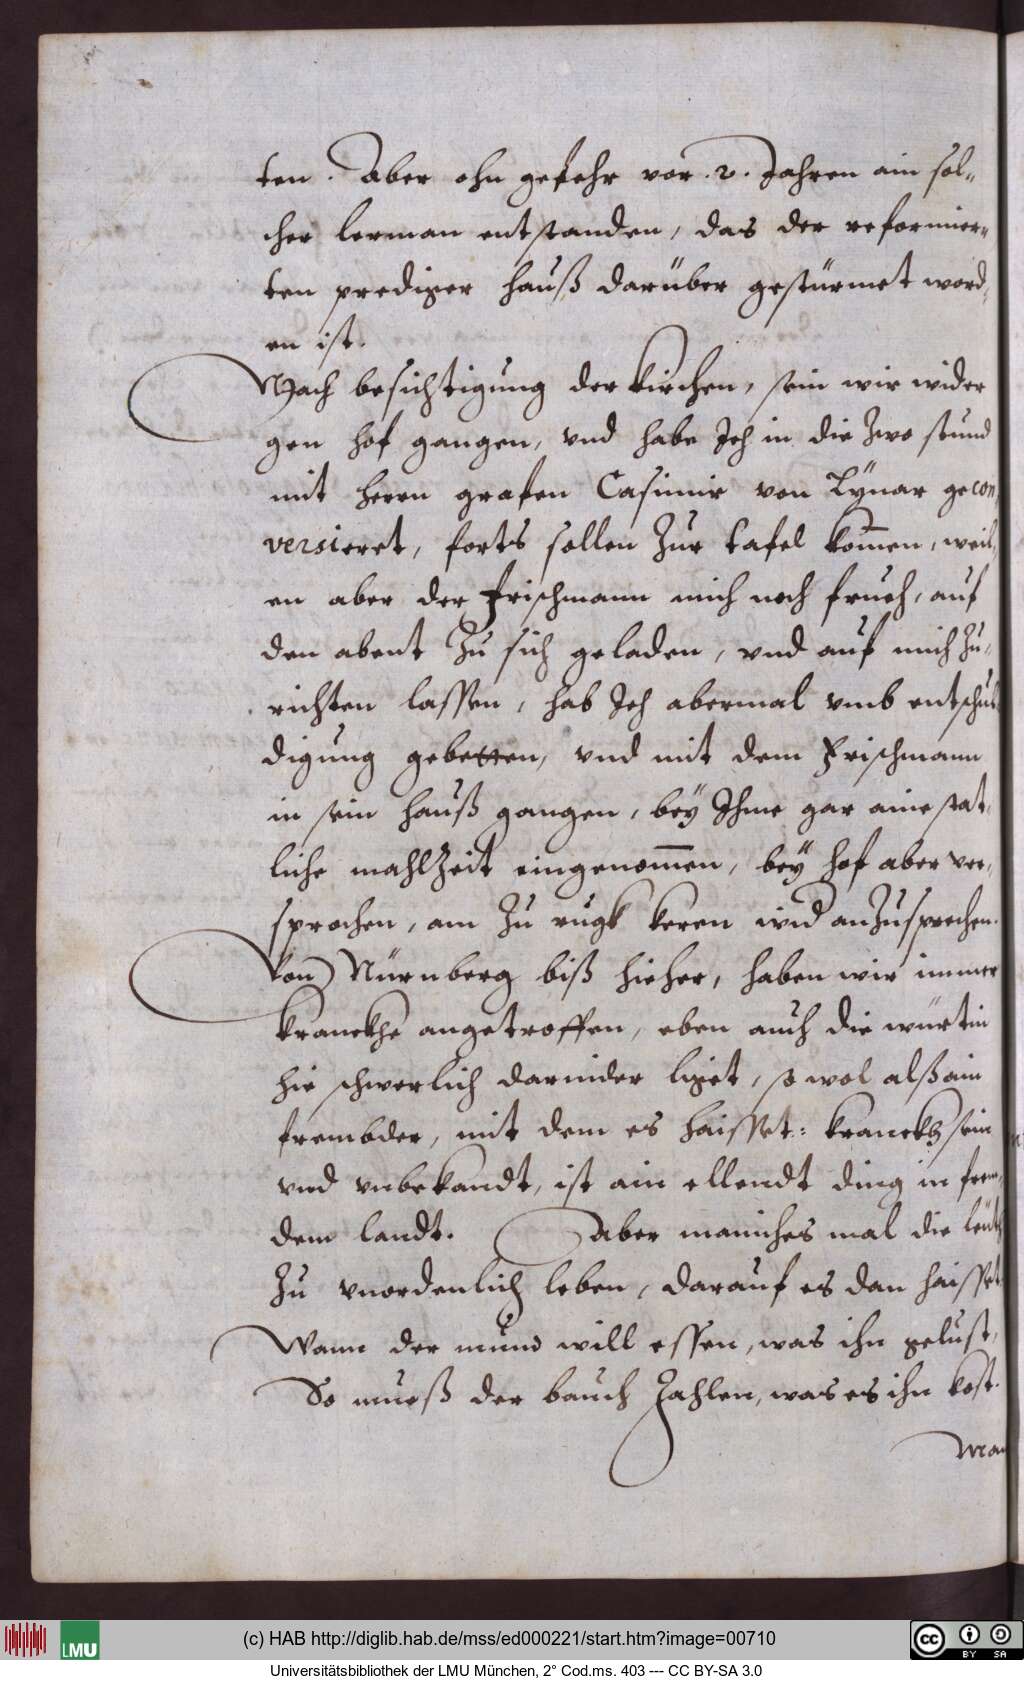 ten. Aber ohn gefehr vor .2. Jahren ain sol-
cher lerman entstanden, das der reformier-
ten prediger hauß darüber gestürmet word-
en ist.
Nach besichtigung der kirchen, sein wir wider
gen hof gangen, vnd habe Ich in die Zwo stund
mit herrn grafen Casimir von Lÿnar gecon-
versieret, forts sollen Zur tafel kom̅en, weil-
en aber der Frischmann mich noch frueh, auf
den abent Zu sich geladen, vnd auf mich Zu-
richten lassen, hab Ich abermal vmb entschul-
digung gebetten, vnd mit dem Frischmann
in sein hauß gangen, beÿ Ihme gar aine stat-
liche mahlZeit eingenom̅en, beÿ hof aber ver-
sprochen, am Zu rugk keren wid anZusprechen.
Von Nürnberg biß hieher, haben wir immer
kranckhe angetroffen, eben auch die würtin
hie schwerlich darnider liget, so wol alß ain
frembder, mit dem es haisset: kranckh sein
vnd vnbekandt, ist ain ellendt ding in frem-
dem landt. Aber maniches mal die leüt
Zu vnordenlich leben, darauf es dan haisset
Wann der mund will essen, was ihn gelust,
So mueß der bauch Zahlen, was es ihn kost.
Man
(c) HAB http://diglib.hab.de/mss/ed000221/start.htm?image=00710
LMU
cc BY SA
Universitätsbibliothek der LMU München, 2° Cod.ms. 403 --- CC BY-SA 3.0